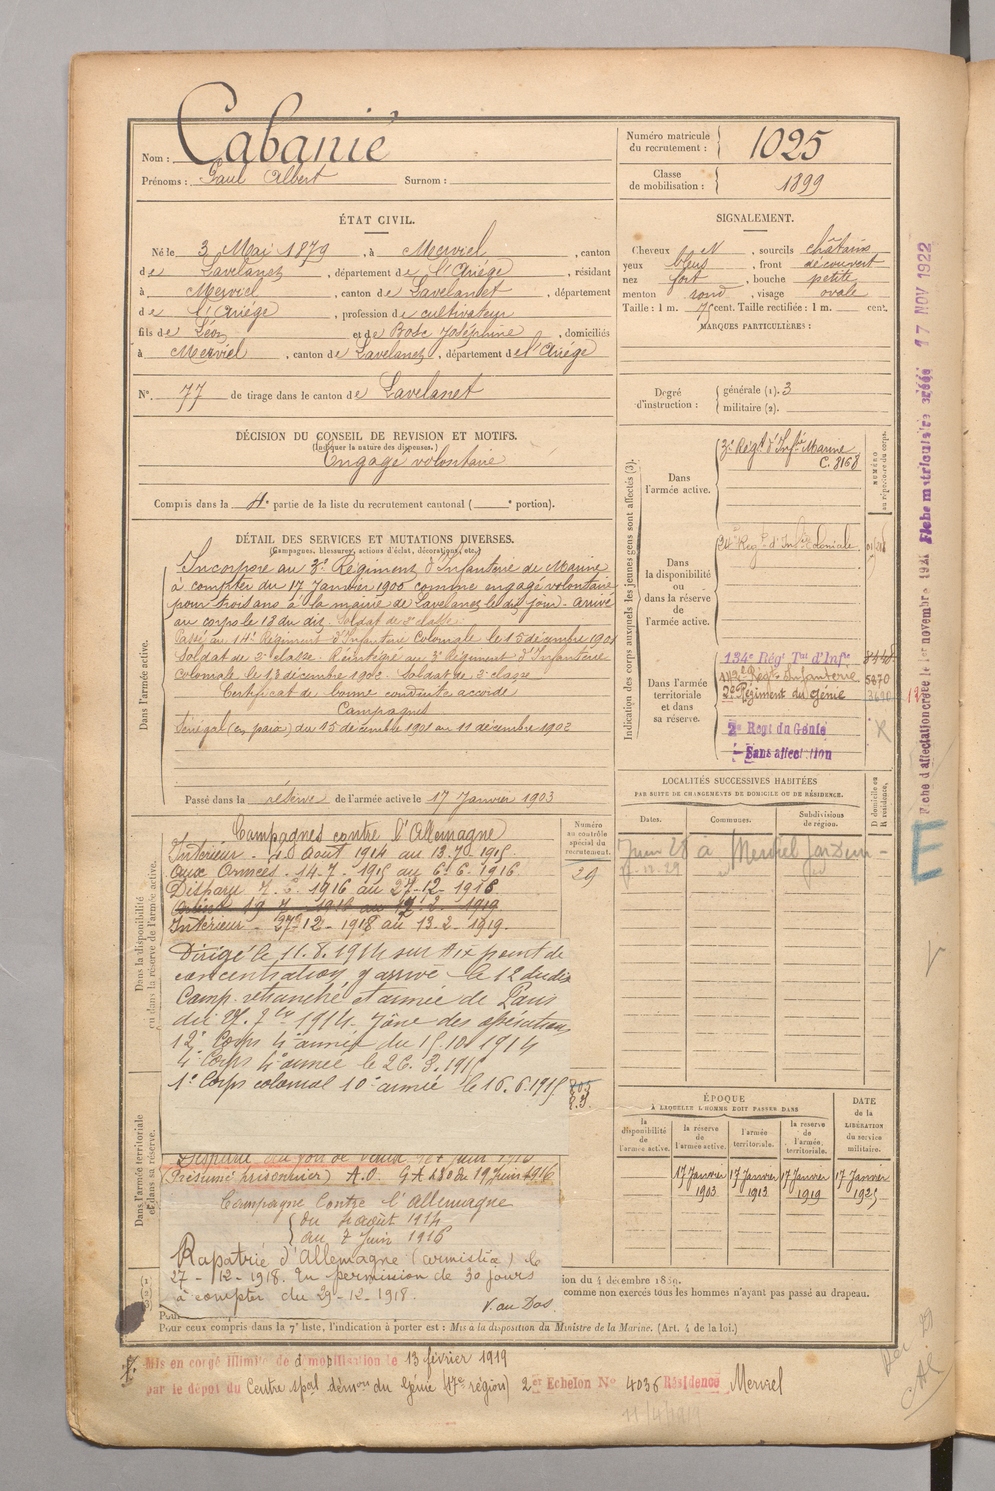 Nom : Cabanié
Prénoms : Paul Albert Surnom :
Numéro matricule du recrutement : 1025
Classe de mobilisation : 1899
ÉTAT CIVIL.
Né le 3 Mai 1879, à Merviel, canton
de Lavelanet, département de l'Ariége, résidant
à Merviel, canton de Lavelanet, département
de l'Ariége, profession de cultivateur
fils de Léon et de Bosc Joséphine, domiciliés
à Merviel, canton de Lavelanet, département de l'Ariége
N° 77 de tirage dans le canton de Lavelanet
SIGNALEMENT.
Cheveux et, sourcils châtains
yeux bleus, front découvert
nez fort, bouche petite
menton rond, visage ovale
Taille : 1 m. 75 cent. Taille rectifiée : 1 m. cent.
MARQUES PARTICULIÈRES :
Degré d'instruction : générale (1). 3
militaire (2).
DÉCISION DU CONSEIL DE REVISION ET MOTIFS.
(Indiquer la nature des dispenses.)
Engagé volontaire
Compris dans la 4e partie de la liste du recrutement cantonal ( e portion).
DÉTAIL DES SERVICES ET MUTATIONS DIVERSES.
(Campagnes, blessures, actions d'éclat, décorations, etc.)
Dans l'armée active.
Incorporé au 3e Régiment d'Infanterie de Marine
à compter du 17 Janvier 1900 comme engagé volontaire
pour trois ans à la mairie de Lavelanet le dit jour. arrivé
au corps le 18 du dit. Soldat de 2e classe.
Passé au 14e Régiment d'Infanterie Coloniale le 15 décembre 1901
Soldat de 2e classe. Réintégré au 3e Régiment d'Infanterie
Coloniale le 12 décembre 1902. Soldat de 2e classe
Certificat de bonne conduite accordé
Campagnes
Sénégal (en paix) du 15 décembre 1901 au 11 décembre 1902
Passé dans la réserve de l'armée active le 17 Janvier 1903
Indication des corps auxquels les jeunes gens sont affectés (3).
NUMÉRO au répertoire du corps.
Dans l'armée active.
3e Régt d'Infie Marine
C. 8168
Dans la disponibilité ou dans la réserve de l'armée active.
24e Regt d'Infie Coloniale
Dans l'armée territoriale et dans sa réserve.
134e Régt Tal d'Infie 8448
142e Régt Infanterie 5870
2e Régiment du génie 3690
2e Regt du Génie
Sans affectation
Fiche d'affectation créée le 1er novembre 1921 Fiche matriculaire créée 17 NOV 1922
Dans la disponibilité ou dans la réserve de l'armée active.
Numéro au contrôle spécial du recrutement.
29
Campagnes contre l'Allemagne
Intérieur - 4 Août 1914 au 13-7-1915.
aux Armées - 14-7-1915 au 6-6-1916
Disparu 7-6-1916 au 27-12-1918
Intérieur - 27-12-1918 au 13-2-1919.
Dirigé le 11.8.1914 sur Aix point de
concentration y arrive le 12 du dit
Camp retranché et armée de Paris
du 1914. Zône des opérations
12e Corps 4e armée du 15.10.1914
4e Corps 4e armée le 26.3.1915
1er Corps colonial 10e armée le 16.6.1915
Dans l'armée territoriale et dans sa réserve.
Disparu au fort de Vaux le 7 juin 1916
(Présumé prisonnier) A.O. G A 280 du 19 juin 1916
Campagne Contre l'Allemagne
du 4 août 1914
au 7 Juin 1916
Rapatrié d'Allemagne (armistice) le
27-12-1918. En permission de 30 jours
à compter du 29-12-1918.
V. au Dos
LOCALITÉS SUCCESSIVES HABITÉES
PAR SUITE DE CHANGEMENTS DE DOMICILE OU DE RÉSIDENCE.
Dates. Communes. Subdivisions de région. D domicile ou R résidence.
ÉPOQUE
À LAQUELLE L'HOMME DOIT PASSER DANS
la disponibilité de l'armée active.
la réserve de l'armée active.
l'armée territoriale.
la réserve de l'armée territoriale.
DATE de la LIBÉRATION du service militaire.
17 Janvier 1903
17 Janvier 1913
17 Janvier 1919
17 Janvier 1925
E
ion du 4 décembre 1889.
comme non exercés tous les hommes n'ayant pas passé au drapeau.
Pour
Pour ceux compris dans la 7e liste, l'indication à porter est : Mis à la disposition du Ministre de la Marine. (Art. 4 de la loi.)
Mis en congé illimité de démobilisation le 13 février 1919
par le dépôt du Centre spal démon du Génie (17e région) 2e Echelon N° 4036 Résidence Merviel